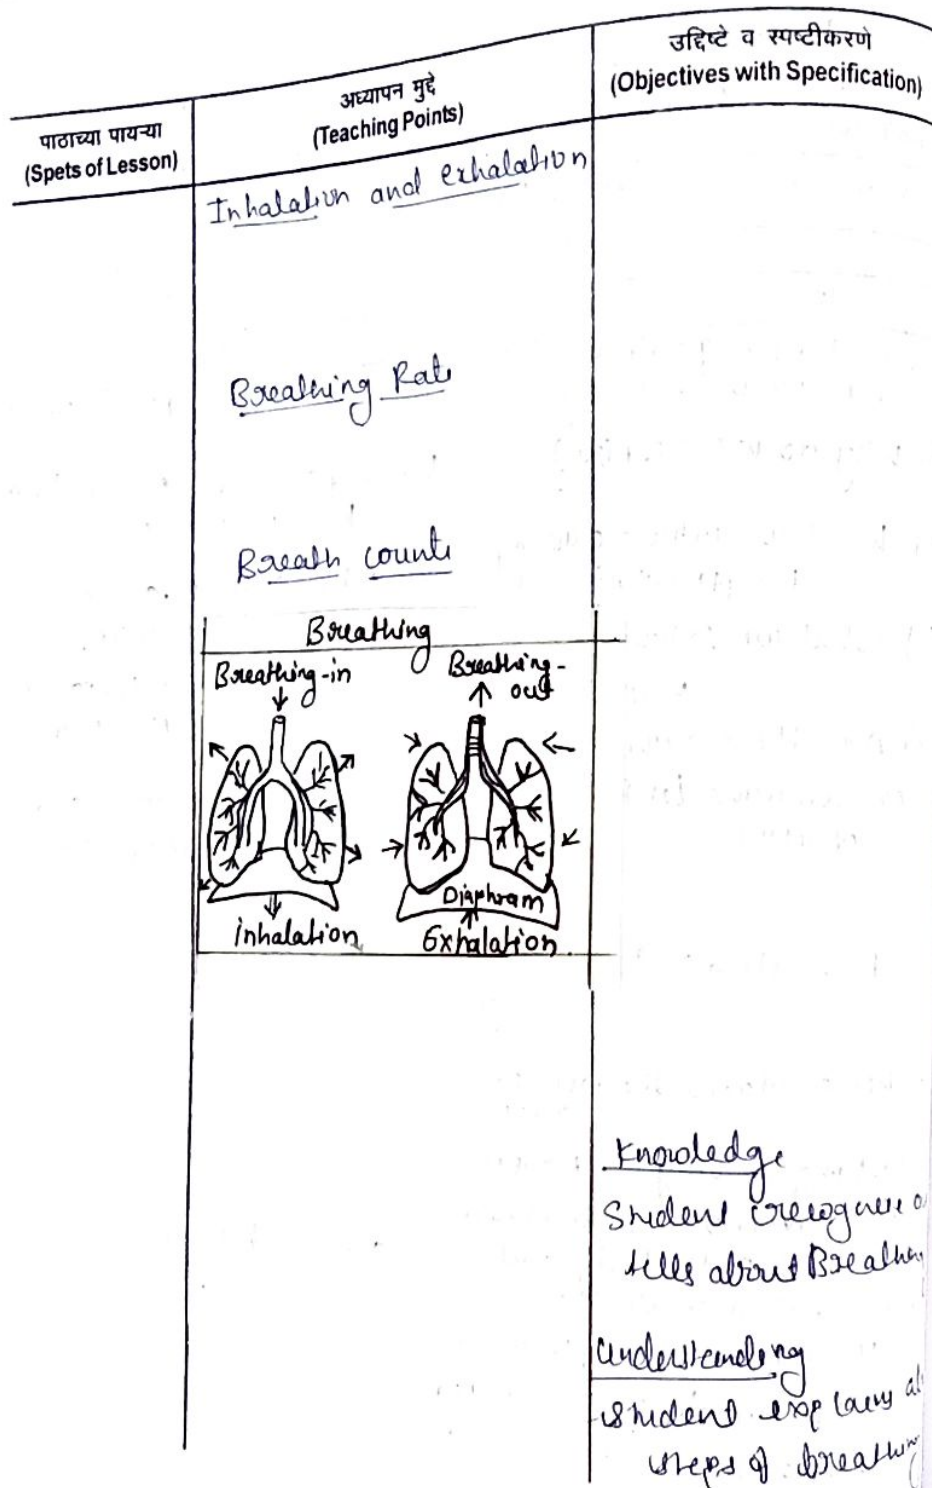 पाठाच्या पायऱ्या
(Spets of Lesson)
अध्यापन मुद्दे
(Teaching Points)
उद्दिष्टे व स्पष्टीकरणे
(Objectives with Specification)
Inhalation and exhalation
Breathing Rate
Breath count
Breathing
Breathing-in
Breathing-
out
Diaphram
inhalation
Exhalation
Knowledge
Student
tells about
Understanding
Student explains
steps of breathing